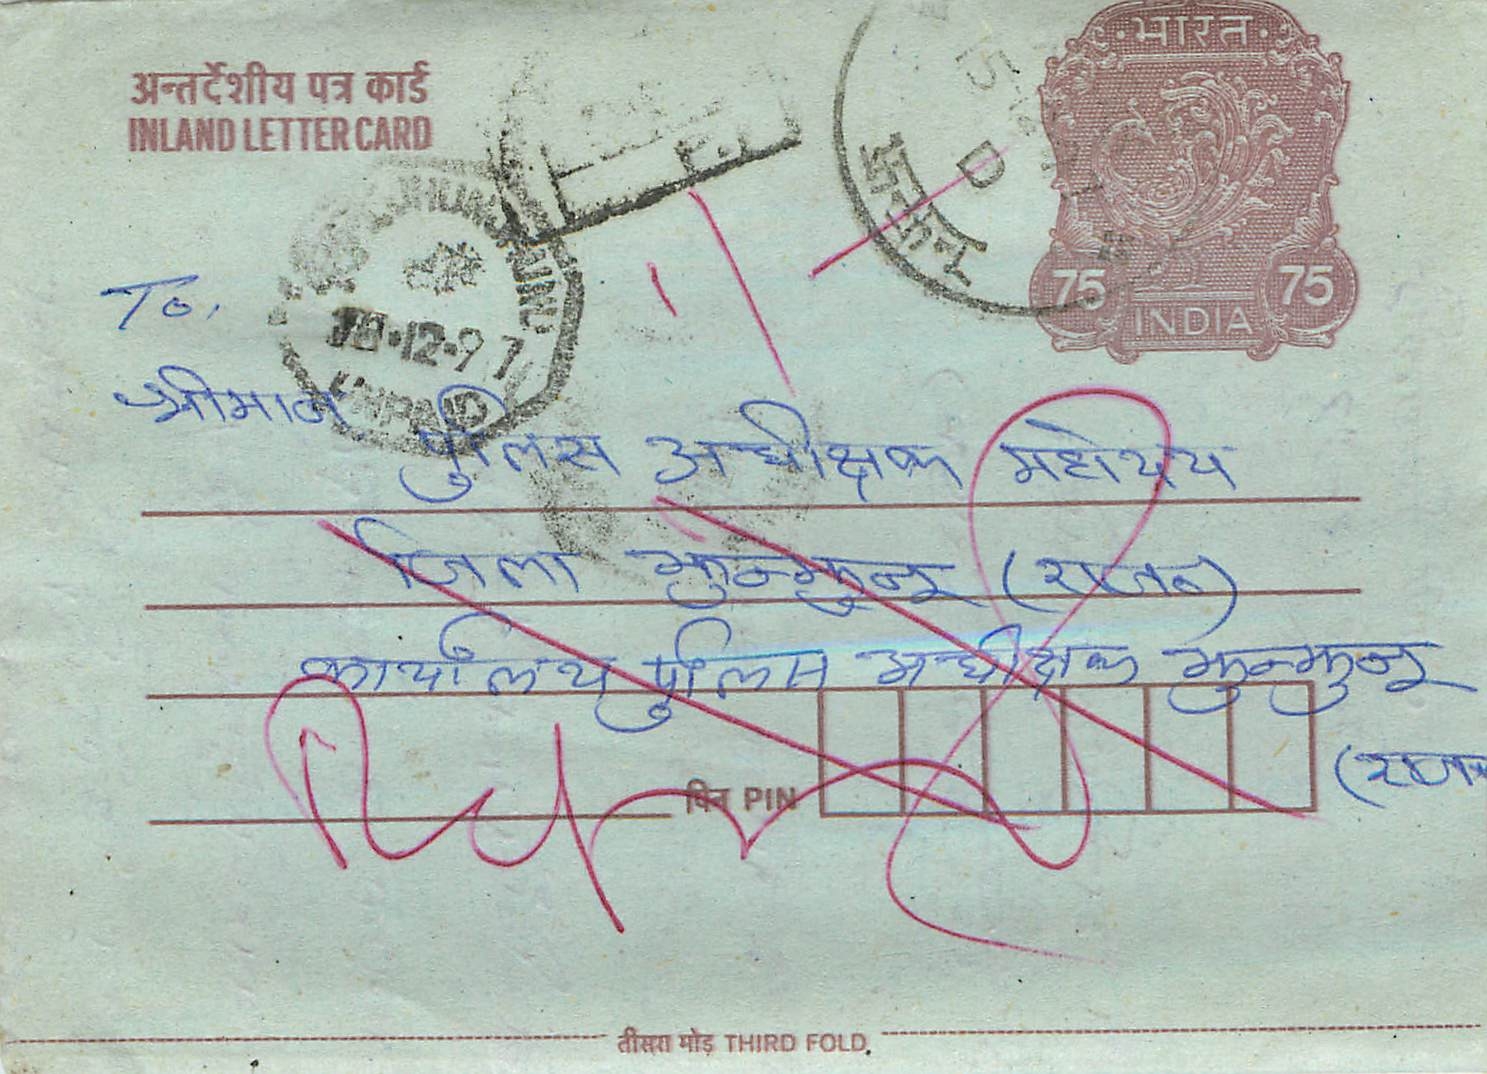 भारत
अन्तर्देशीय पत्र कार्ड
INLAND LETTER CARD
D
75 75
INDIA
JHUNJHUNU
12-97
UNPAID
To,
श्रीमान
पुलिस अधीक्षक महोदय
जिला झुन्झुनू (राज०)
कार्यालय पुलिस अधीक्षक झुन्झुनू
(राज
पिन PIN
तीसरा मोड़ THIRD FOLD